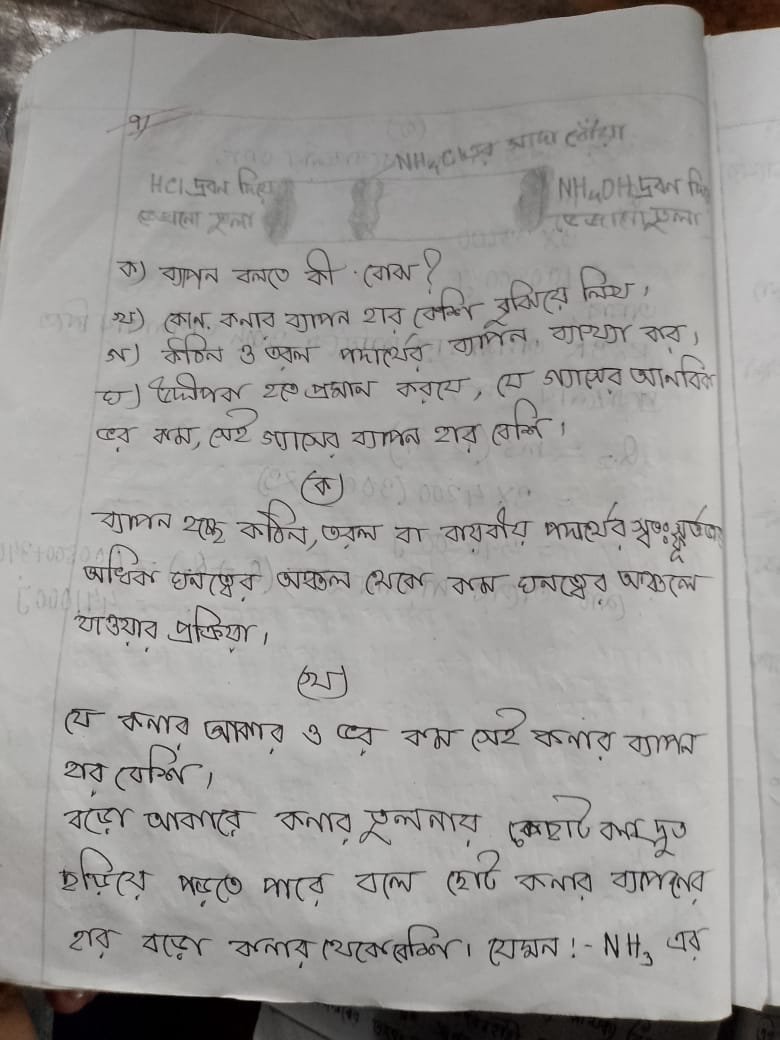 ৭)
NH₄Cl এর সাদা ধোঁয়া
HCl দ্রবন সিক্ত
তুলা
NH₄OH দ্রবন
তুলা
ক) ব্যাপন বলতে কী বোঝ?
খ) কোন কনার ব্যাপন হার বেশি বুঝিয়ে লিখ।
গ) কঠিন ও তরল পদার্থের ব্যাপন ব্যাখ্যা কর।
ঘ) উদ্দীপক হতে প্রমান করযে, যে গ্যাসের আনবিক
ভর কম, সেই গ্যাসের ব্যাপন হার বেশি।
(ক)
ব্যাপন হচ্ছে কঠিন, তরল বা বায়বীয় পদার্থের স্বতঃস্ফূর্তভাবে
অধিক ঘনত্বের অঞ্চল থেকে কম ঘনত্বের অঞ্চলে
যাওয়ার প্রক্রিয়া।
(খ)
যে কনার আকার ও ভর কম সেই কনার ব্যাপন
হার বেশি।
বড়ো আকারে কনার তুলনায় ছোট কনা দ্রুত
ছড়িয়ে পড়তে পারে বলে ছোট কনার ব্যাপনের
হার বড়ো কনার থেকে বেশি। যেমন:- NH₃ এর